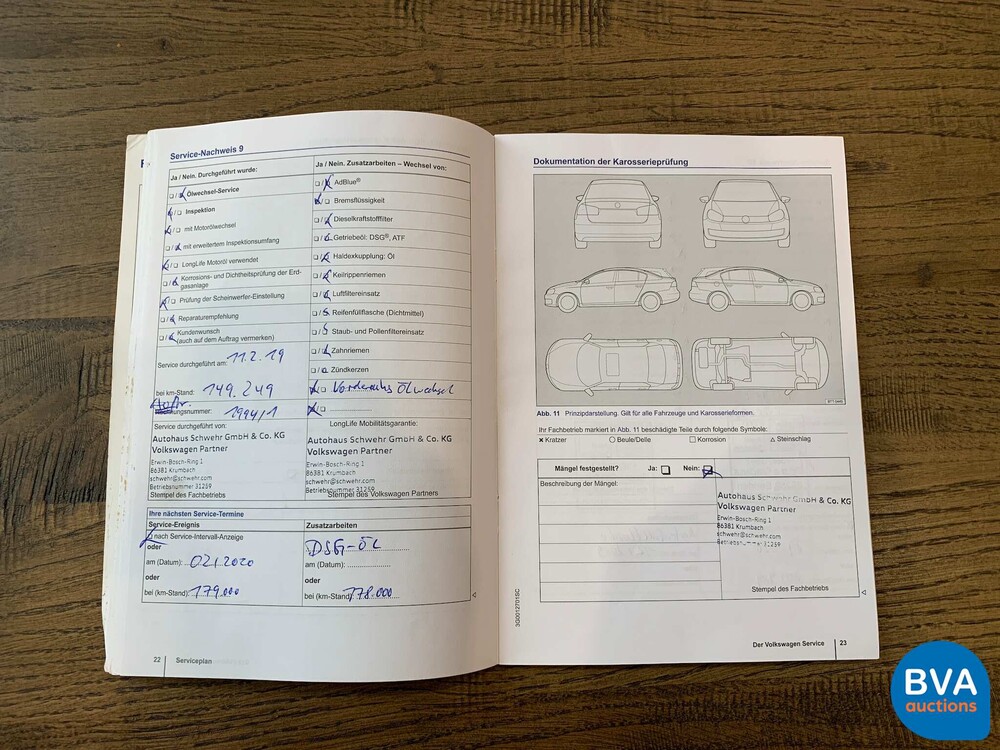 Service-Nachweis 9
Ja / Nein. Durchgeführt wurde:
Ölwechsel-Service
Inspektion
mit Motorölwechsel
mit erweitertem Inspektionsumfang
LongLife Motoröl verwendet
Korrosions- und Dichtheitsprüfung der Erd-
gasanlage
Prüfung der Scheinwerfer-Einstellung
Reparaturempfehlung
Kundenwunsch
(auch auf dem Auftrag vermerken)
Service durchgeführt am: 11.2.19
bei km-Stand: 149.249
1994/1
Service durchgeführt von:
Autohaus Schwehr GmbH & Co. KG
Volkswagen Partner
Erwin-Bosch-Ring 1
86381 Krumbach
schwehr@schwehr.com
Betriebsnummer 31259
Stempel des Fachbetriebs
Ja / Nein. Zusatzarbeiten – Wechsel von:
AdBlue®
Bremsflüssigkeit
Dieselkraftstofffilter
Getriebeöl: DSG®, ATF
Haldexkupplung: Öl
Keilrippenriemen
Luftfiltereinsatz
Reifenfüllflasche (Dichtmittel)
Staub- und Pollenfiltereinsatz
Zahnriemen
Zündkerzen
Ölwechsel
LongLife Mobilitätsgarantie:
Autohaus Schwehr GmbH & Co. KG
Volkswagen Partner
Erwin-Bosch-Ring 1
86381 Krumbach
schwehr@schwehr.com
Betriebsnummer 31259
Stempel des Volkswagen Partners
Ihre nächsten Service-Termine
Service-Ereignis
nach Service-Intervall-Anzeige
oder
am (Datum): 02.2020
oder
bei (km-Stand): 179.000
Zusatzarbeiten
DSG-ÖL
am (Datum):
oder
bei (km-Stand) 178.000
22 Serviceplan
Dokumentation der Karosserieprüfung
Abb. 11 Prinzipdarstellung. Gilt für alle Fahrzeuge und Karosserieformen.
Ihr Fachbetrieb markiert in Abb. 11 beschädigte Teile durch folgende Symbole:
× Kratzer ○ Beule/Delle □ Korrosion △ Steinschlag
Mängel festgestellt? Ja: Nein:
Beschreibung der Mängel:
Autohaus Schwehr GmbH & Co. KG
Volkswagen Partner
Erwin-Bosch-Ring 1
86381 Krumbach
schwehr@schwehr.com
Stempel des Fachbetriebs
3G0012701SC
Der Volkswagen Service 23
BVA
auctions